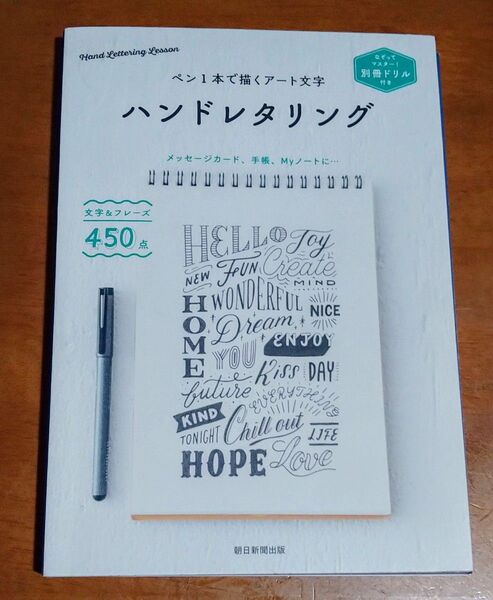 Hand Lettering Lesson
なぞって
マスター!
別冊ドリル
付き
ペン1本で描くアート文字
ハンドレタリング
メッセージカード、手帳、Myノートに…
文字&フレーズ
450点
HELLO Joy
NEW FUN Create
MIND
HOME WONDERFUL
NICE
Dream
YOU ENJOY
future Kiss DAY
EVERYTHING
KIND
TONIGHT Chill out LIFE
HOPE Love
朝日新聞出版